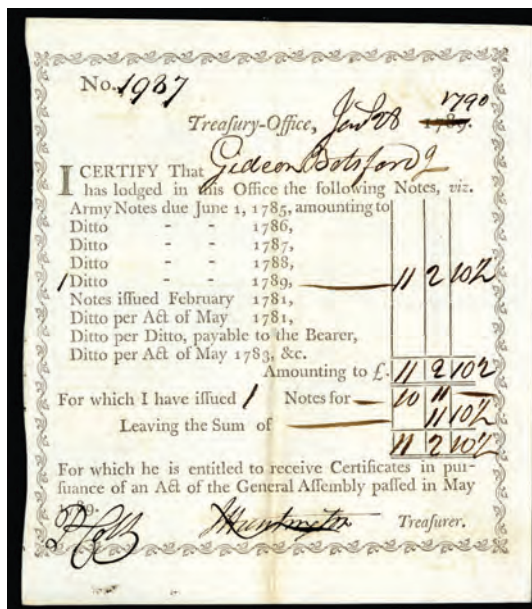 No. 1937
Treasury-Office, Jany 28 1789. 1790
I CERTIFY That Gideon Botsford
has lodged in this Office the following Notes, viz.
Army Notes due June 1, 1785, amounting to
Ditto - - 1786,
Ditto - - 1787,
Ditto - - 1788,
1 Ditto - - 1789, 11 2 10½
Notes iſſued February 1781,
Ditto per Act of May 1781,
Ditto per Ditto, payable to the Bearer,
Ditto per Act of May 1783, &c.
Amounting to £. 11 2 10½
For which I have iſſued 1 Notes for 10 11
Leaving the Sum of 11 10½
11 2 10½
For which he is entitled to receive Certificates in pur-
ſuance of an Act of the General Aſſembly paſſed in May
1789.
J Huntington Treaſurer.